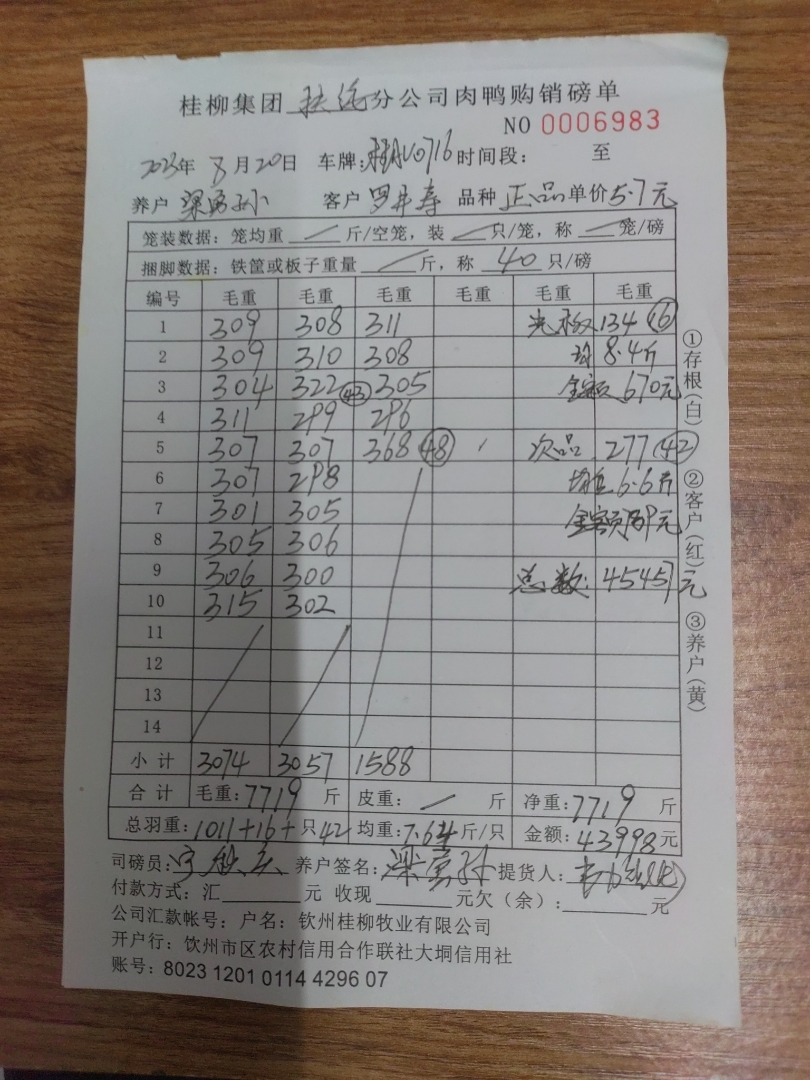 桂柳集团 扶绥 分公司肉鸭购销磅单
NO 0006983
2023年 8月20日 车牌: 时间段: 至
养户 梁勇孙 客户 品种 正品 单价 5.7元
笼装数据: 笼均重 / 斤/空笼, 装 / 只/笼, 称 / 笼/磅
捆脚数据: 铁筐或板子重量 / 斤, 称 40 只/磅
编号 毛重 毛重 毛重 毛重 毛重 毛重
1 309 308 311 134 (16)
2 309 310 308 均 8.4斤
3 304 322 (43) 305 金额 670元
4 311 299 296
5 307 307 368 (48) 次品 277 (42)
6 307 298 均重 6.6斤
7 301 305 金额 元
8 305 306
9 306 300 总数: 45457元
10 315 302
11
12
13
14
小计 3074 3057 1588
合计 毛重: 7719 斤 皮重: / 斤 净重: 7719 斤
总羽重: 1011+16+ 只 42 均重: 7.64 斤/只 金额: 43998元
司磅员: 养户签名: 梁勇孙 提货人:
付款方式: 汇 元 收现 元欠(余): 元
公司汇款帐号: 户名: 钦州桂柳牧业有限公司
开户行: 钦州市区农村信用合作联社大垌信用社
账号: 8023 1201 0114 4296 07
①存根(白) ②客户(红) ③养户(黄)